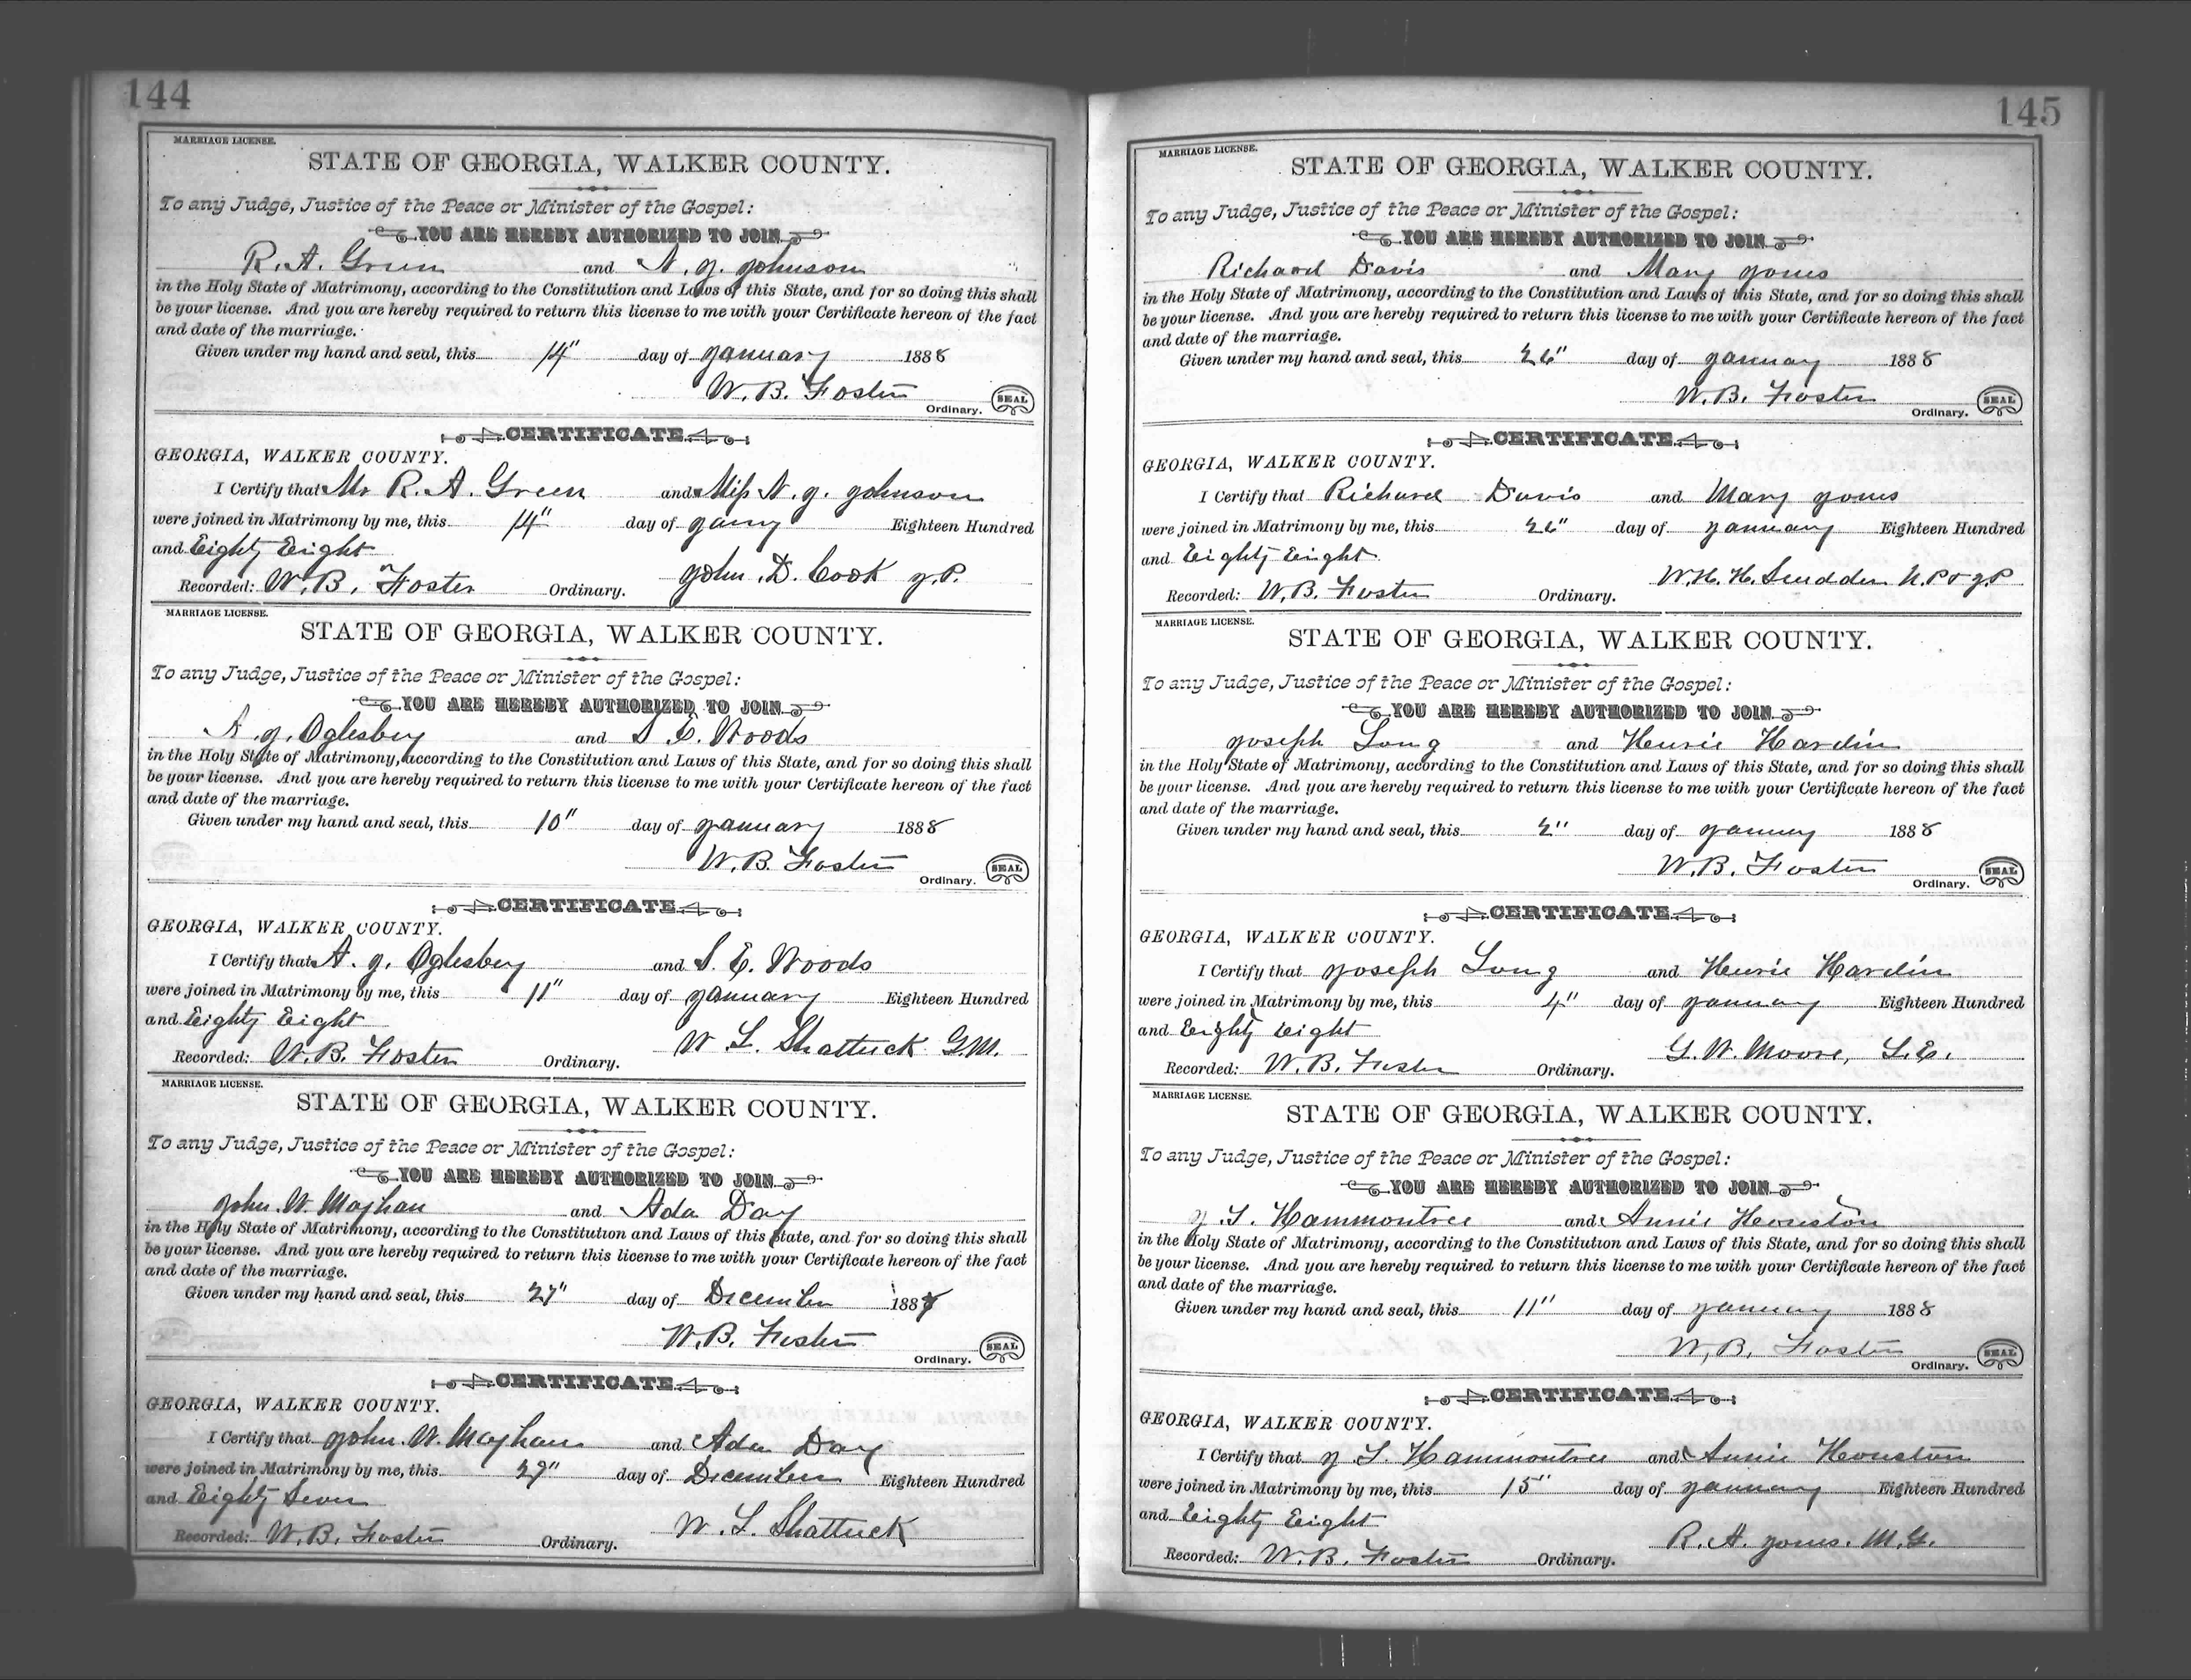 144
MARRIAGE LICENSE.
STATE OF GEORGIA, WALKER COUNTY.
To any Judge, Justice of the Peace or Minister of the Gospel:
YOU ARE HEREBY AUTHORIZED TO JOIN
R. A. Green and N. J. Johnson
in the Holy State of Matrimony, according to the Constitution and Laws of this State, and for so doing this shall
be your license. And you are hereby required to return this license to me with your Certificate hereon of the fact
and date of the marriage.
Given under my hand and seal, this 14" day of January 1888
W. B. Foster
Ordinary. SEAL
CERTIFICATE
GEORGIA, WALKER COUNTY.
I Certify that Mr R. A. Green and Miss N. J. Johnson
were joined in Matrimony by me, this 14" day of Jany Eighteen Hundred
and Eighty Eight
John D. Cook J.P.
Recorded: W. B. Foster Ordinary.
MARRIAGE LICENSE.
STATE OF GEORGIA, WALKER COUNTY.
To any Judge, Justice of the Peace or Minister of the Gospel:
YOU ARE HEREBY AUTHORIZED TO JOIN
A. J. Oglesbey and S. E. Woods
in the Holy State of Matrimony, according to the Constitution and Laws of this State, and for so doing this shall
be your license. And you are hereby required to return this license to me with your Certificate hereon of the fact
and date of the marriage.
Given under my hand and seal, this 10" day of January 1888
W. B. Foster
Ordinary. SEAL
CERTIFICATE
GEORGIA, WALKER COUNTY.
I Certify that A. J. Oglesbey and S. E. Woods
were joined in Matrimony by me, this 11" day of January Eighteen Hundred
and Eighty Eight
W. L. Shattuck G.M.
Recorded: W. B. Foster Ordinary.
MARRIAGE LICENSE.
STATE OF GEORGIA, WALKER COUNTY.
To any Judge, Justice of the Peace or Minister of the Gospel:
YOU ARE HEREBY AUTHORIZED TO JOIN
John W. and Ada Day
in the Holy State of Matrimony, according to the Constitution and Laws of this State, and for so doing this shall
be your license. And you are hereby required to return this license to me with your Certificate hereon of the fact
and date of the marriage.
Given under my hand and seal, this 27" day of December 1887
W. B. Foster
Ordinary. SEAL
CERTIFICATE
GEORGIA, WALKER COUNTY.
I Certify that John W. and Ada Day
were joined in Matrimony by me, this 29" day of December Eighteen Hundred
and Eighty Seven
W. L. Shattuck
Recorded: W. B. Foster Ordinary.
145
MARRIAGE LICENSE.
STATE OF GEORGIA, WALKER COUNTY.
To any Judge, Justice of the Peace or Minister of the Gospel:
YOU ARE HEREBY AUTHORIZED TO JOIN
Richard Davis and Mary Jones
in the Holy State of Matrimony, according to the Constitution and Laws of this State, and for so doing this shall
be your license. And you are hereby required to return this license to me with your Certificate hereon of the fact
and date of the marriage.
Given under my hand and seal, this 26" day of January 1888
W. B. Foster
Ordinary. SEAL
CERTIFICATE
GEORGIA, WALKER COUNTY.
I Certify that Richard Davis and Mary Jones
were joined in Matrimony by me, this 26" day of January Eighteen Hundred
and Eighty Eight
W. H. H. N.P. & J.P
Recorded: W. B. Foster Ordinary.
MARRIAGE LICENSE.
STATE OF GEORGIA, WALKER COUNTY.
To any Judge, Justice of the Peace or Minister of the Gospel:
YOU ARE HEREBY AUTHORIZED TO JOIN
Joseph Long and Hardin
in the Holy State of Matrimony, according to the Constitution and Laws of this State, and for so doing this shall
be your license. And you are hereby required to return this license to me with your Certificate hereon of the fact
and date of the marriage.
Given under my hand and seal, this 2" day of January 1888
W. B. Foster
Ordinary. SEAL
CERTIFICATE
GEORGIA, WALKER COUNTY.
I Certify that Joseph Long and Hardin
were joined in Matrimony by me, this 4" day of January Eighteen Hundred
and Eighty Eight
G. W. Moore, L.E.
Recorded: W. B. Foster Ordinary.
MARRIAGE LICENSE.
STATE OF GEORGIA, WALKER COUNTY.
To any Judge, Justice of the Peace or Minister of the Gospel:
YOU ARE HEREBY AUTHORIZED TO JOIN
J. S. Hammontree and Annie Heouston
in the Holy State of Matrimony, according to the Constitution and Laws of this State, and for so doing this shall
be your license. And you are hereby required to return this license to me with your Certificate hereon of the fact
and date of the marriage.
Given under my hand and seal, this 11" day of January 1888
W. B. Foster
Ordinary. SEAL
CERTIFICATE
GEORGIA, WALKER COUNTY.
I Certify that J. S. Hammontree and Annie Heouston
were joined in Matrimony by me, this 15" day of January Eighteen Hundred
and Eighty Eight
R. A. Jones. M.G.
Recorded: W. B. Foster Ordinary.